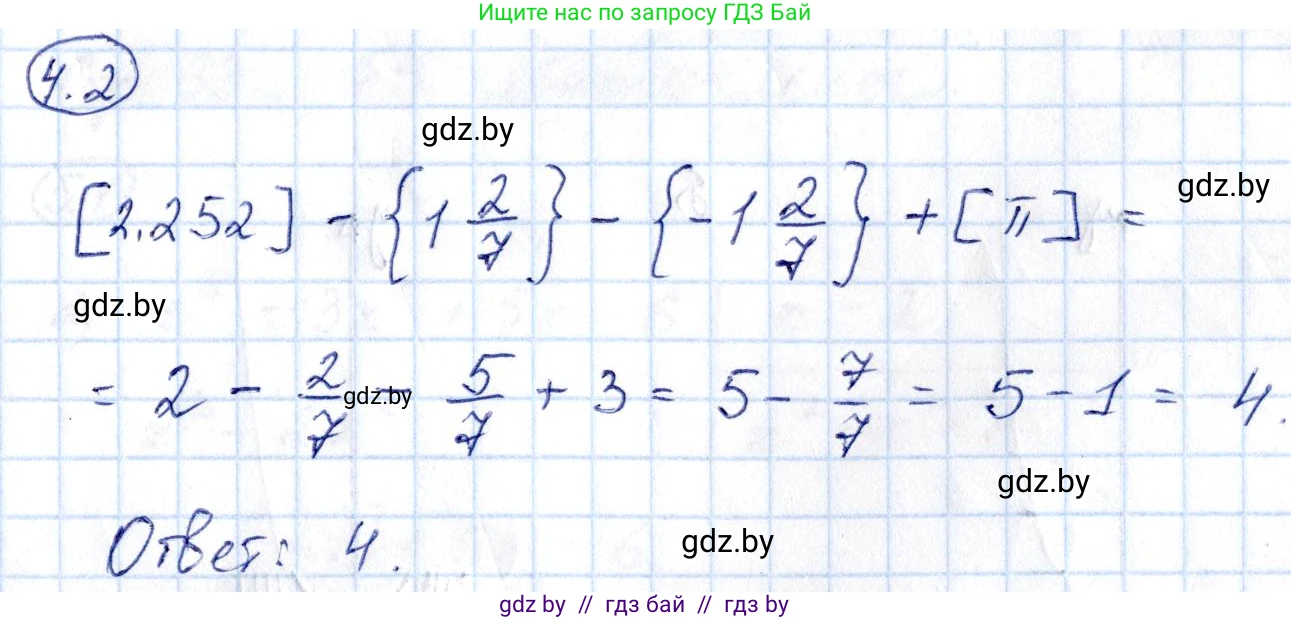 Ищите нас по запросу ГДЗ Бай
4.2
gdz.by
gdz.by
[2,252] - {1 2/7} - {-1 2/7} + [π] =
gdz.by
= 2 - 2/7 - 5/7 + 3 = 5 - 7/7 = 5 - 1 = 4.
gdz.by
gdz.by
Ответ: 4.
gdz.by
gdz by // гдз бай // гдз by